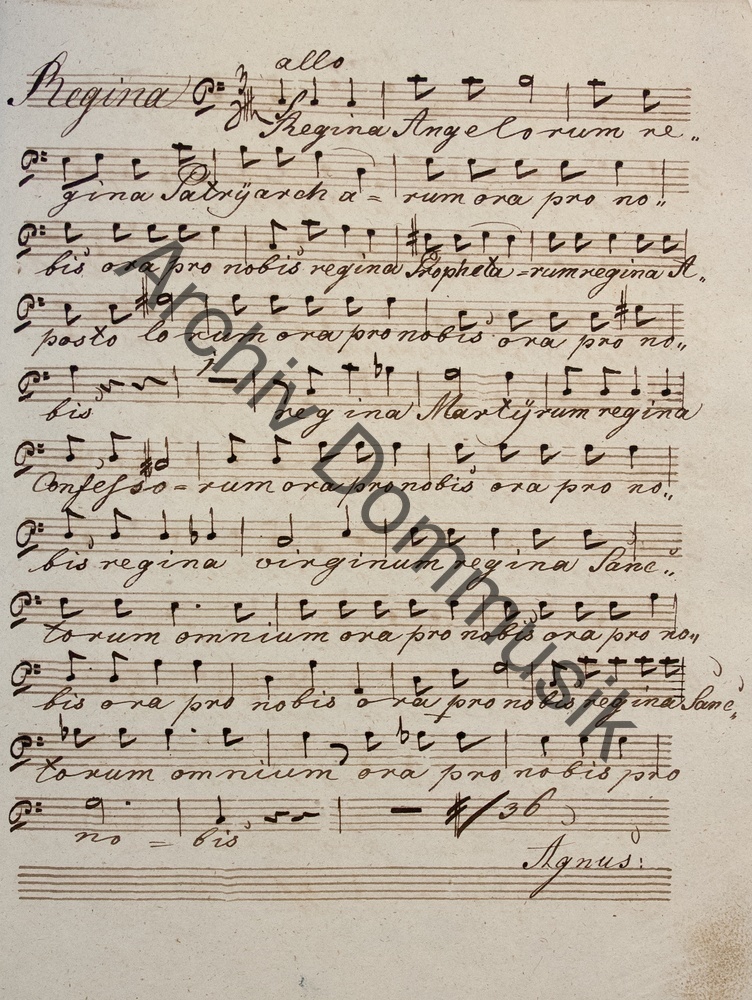 allo
Regina
Regina Angelorum re„
gina Patrÿarcha= rum ora pro no„
bis ora pro nobis regina Propheta =rum regina A„
posto lorum ora pro nobis ora pro no„
bis regina Martÿrum regina
Confesso=rum ora pro nobis ora pro no„
bis regina virginum regina Sanc„
torum omnium ora pro nobis ora pro no„
bis ora pro nobis ora pro nobis regina Sanc„
torum omnium ora pro nobis pro
no = bis 36
Agnus:
Archiv Dommusik